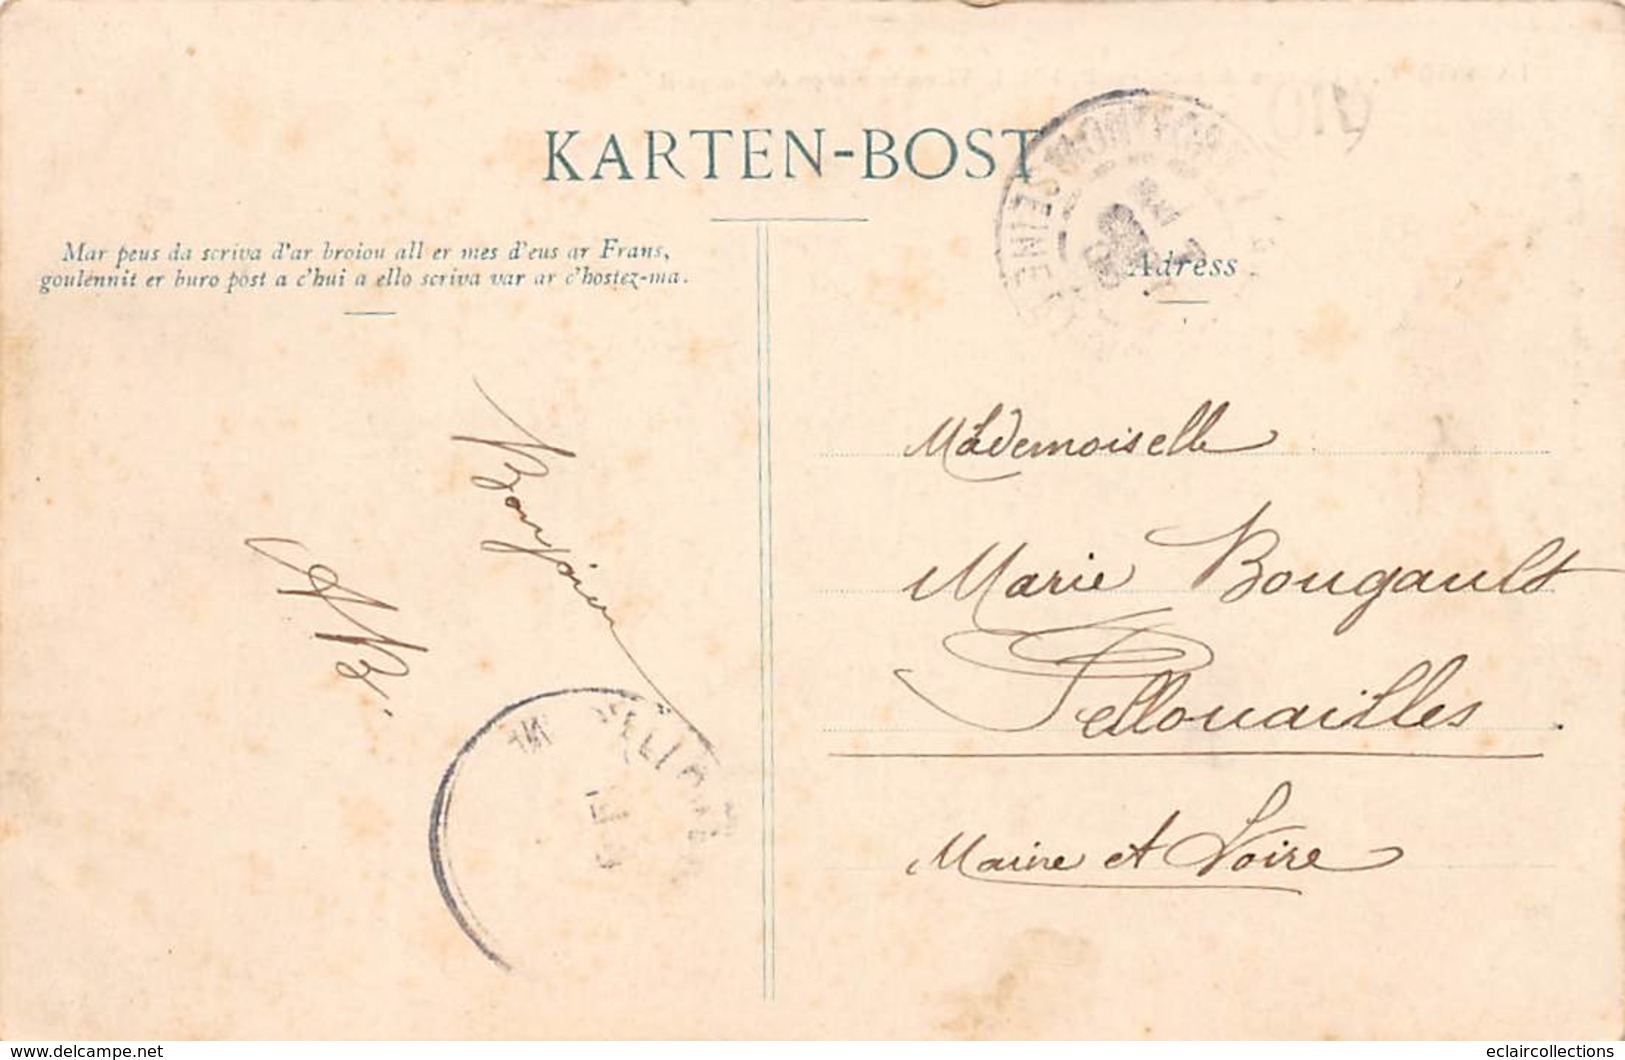 KARTEN-BOST
Mar peus da scriva d'ar broiou all er mes d'eus ar Frans,
goulennit er buro post a c'hui a ello scriva var ar c'hostez-ma.
Adress
Mademoiselle
Marie Bougault
Pellouailles
Maine et Loire
Bonjour
MB.
SEINE
eclaircollections
www.delcampe.net